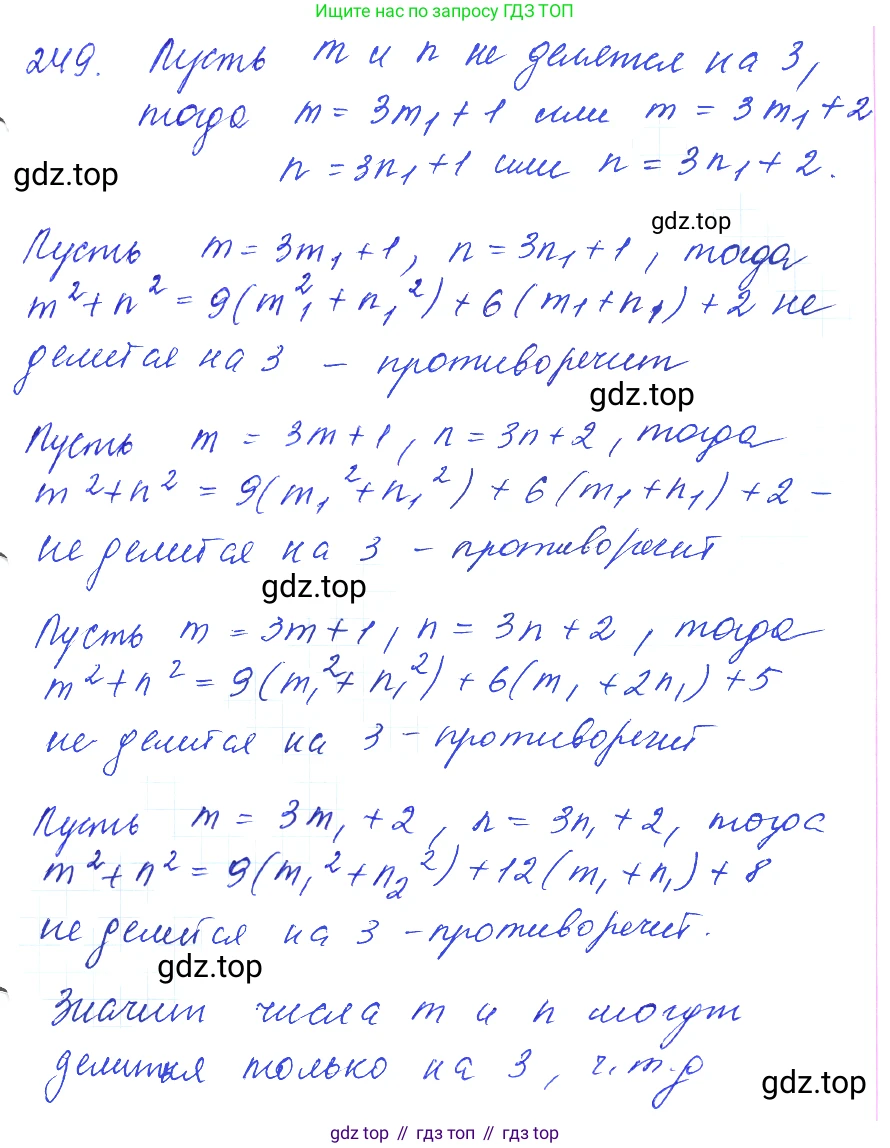 Ищите нас по запросу ГДЗ ТОП
249. Пусть m и n не делятся на 3,
тогда m = 3m₁ + 1 или m = 3m₁ + 2
n = 3n₁ + 1 или n = 3n₁ + 2.
gdz.top
gdz.top
Пусть m = 3m₁ + 1, n = 3n₁ + 1, тогда
m² + n² = 9(m₁² + n₁²) + 6(m₁ + n₁) + 2 не
делится на 3 – противоречит
gdz.top
Пусть m = 3m + 1, n = 3n + 2, тогда
m² + n² = 9(m₁² + n₁²) + 6(m₁ + n₁) + 2 –
не делится на 3 – противоречит
gdz.top
Пусть m = 3m + 1, n = 3n + 2, тогда
m² + n² = 9(m₁² + n₁²) + 6(m₁ + 2n₁) + 5
не делится на 3 – противоречит
Пусть m = 3m₁ + 2, n = 3n₁ + 2, тогда
m² + n² = 9(m₁² + n₂²) + 12(m₁ + n₁) + 8
не делится на 3 – противоречит.
gdz.top
Значит числа m и n могут
делиться только на 3, ч.т.д
gdz.top
gdz top // гдз топ // gdz top